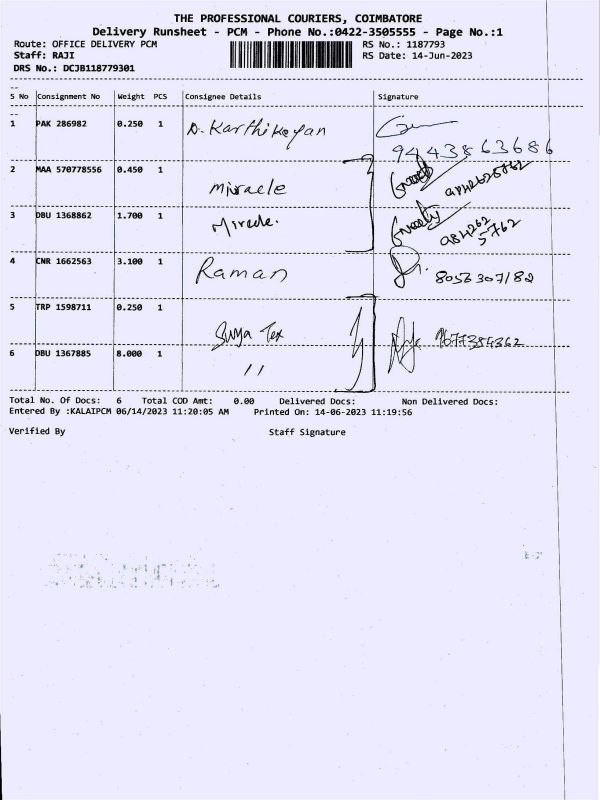 THE PROFESSIONAL COURIERS, COIMBATORE
Delivery Runsheet - PCM - Phone No.:0422-3505555 - Page No.:1
Route: OFFICE DELIVERY PCM RS No.: 1187793
Staff: RAJI RS Date: 14-Jun-2023
DRS No.: DCJB118779301
S No Consignment No Weight PCS Consignee Details Signature
1 PAK 286982 0.250 1 D. Karthikeyan
9443863686
2 MAA 570778556 0.450 1 miracle
3 DBU 1368862 1.700 1 Miracle.
984262
5762
4 CNR 1662563 3.100 1 Raman 8056307182
5 TRP 1598711 0.250 1 Surya Tex 9677384362
6 DBU 1367885 8.000 1 11
Total No. Of Docs: 6 Total COD Amt: 0.00 Delivered Docs: Non Delivered Docs:
Entered By :KALAIPCM 06/14/2023 11:20:05 AM Printed On: 14-06-2023 11:19:56
Verified By Staff Signature